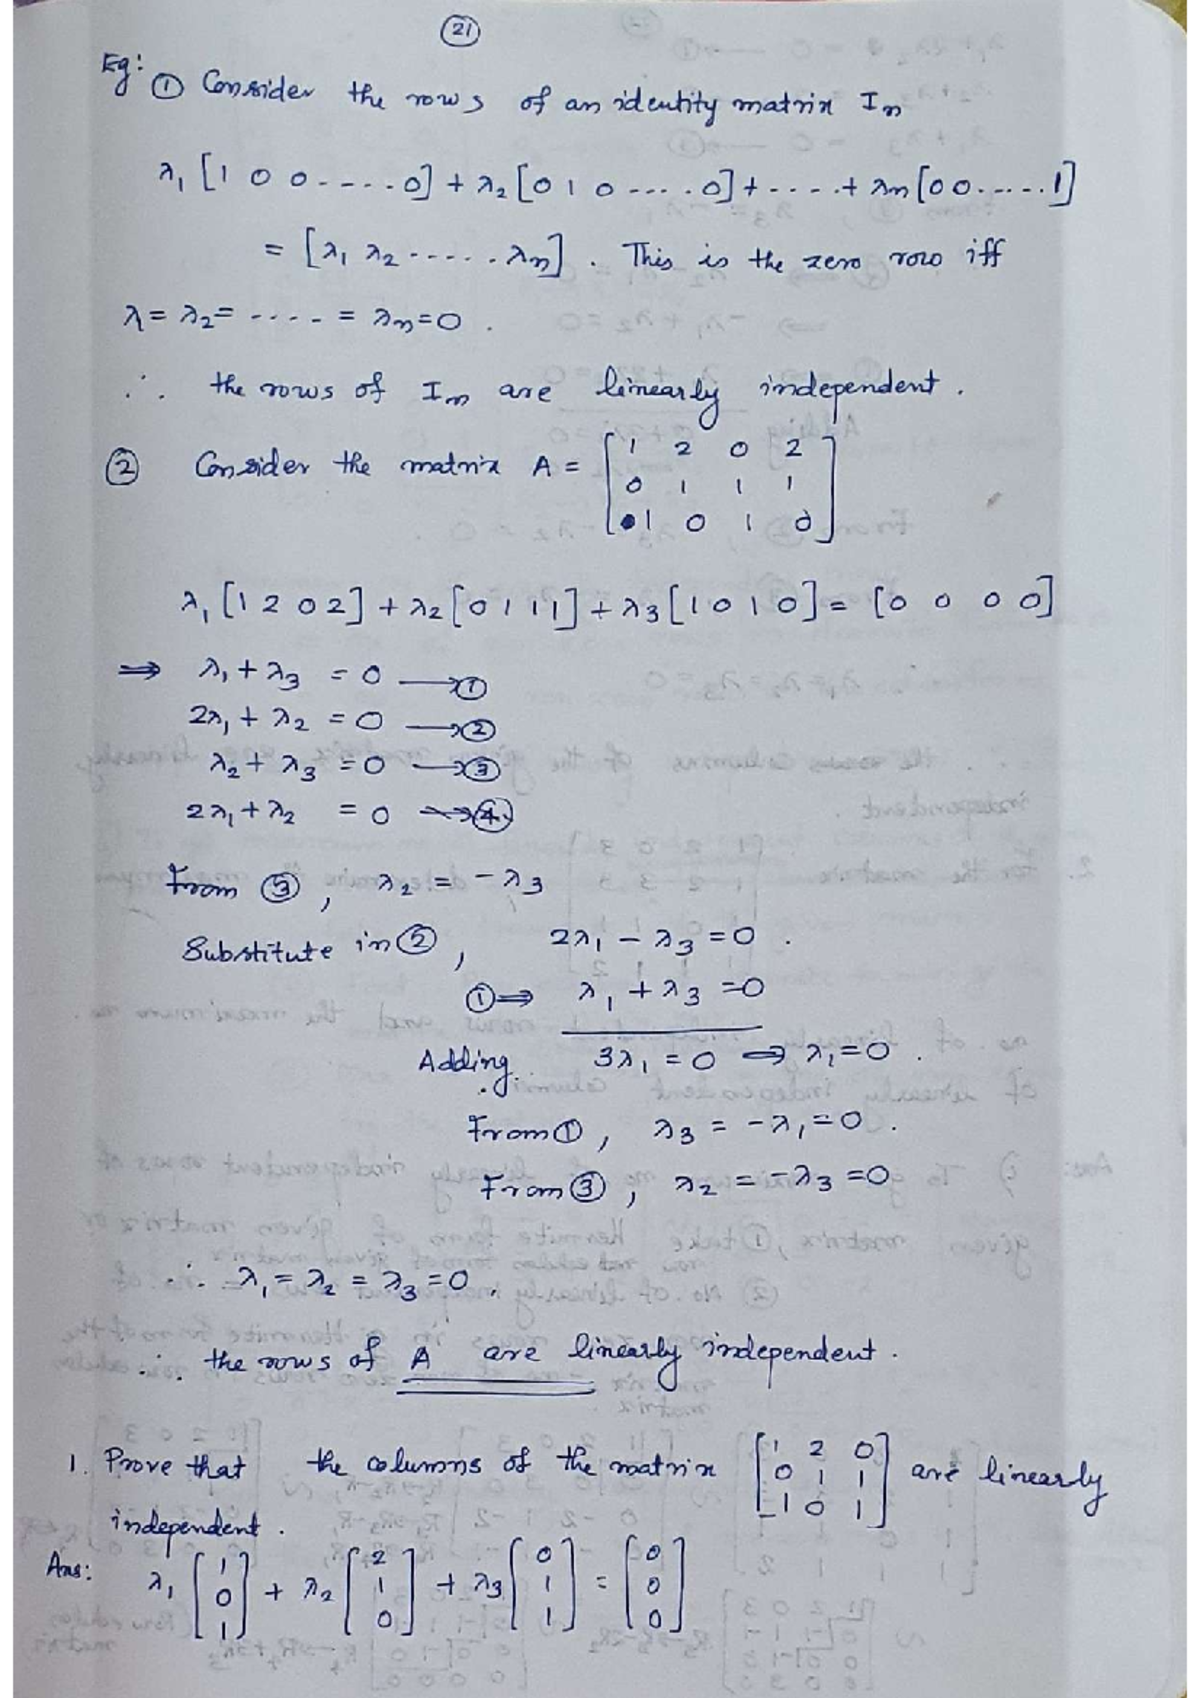 21
Eg: ① Consider the rows of an identity matrix Iₙ
λ₁ [1 0 0 ..... 0] + λ₂ [0 1 0 ..... 0] + ..... + λₙ [0 0 ..... 1]
= [λ₁ λ₂ ...... λₙ] . This is the zero row iff
λ = λ₂ = ..... = λₙ = 0 .
∴ the rows of Iₙ are linearly independent .
② Consider the matrix A = [1 2 0 2
0 1 1 1
1 0 1 0]
λ₁ [1 2 0 2] + λ₂ [0 1 1 1] + λ₃ [1 0 1 0] = [0 0 0 0]
⇒ λ₁ + λ₃ = 0 → ①
2λ₁ + λ₂ = 0 → ②
λ₂ + λ₃ = 0 → ③
2λ₁ + λ₂ = 0 → ④
From ③ , λ₂ = - λ₃
Substitute in ② , 2λ₁ - λ₃ = 0 .
① ⇒ λ₁ + λ₃ = 0
Adding. 3λ₁ = 0 ⇒ λ₁ = 0 .
From ① , λ₃ = - λ₁ = 0 .
From ③ , λ₂ = - λ₃ = 0
∴ λ₁ = λ₂ = λ₃ = 0 .
∴ the rows of A are linearly independent .
1. Prove that the columns of the matrix [1 2 0
0 1 1
1 0 1] are linearly
independent .
Ans: λ₁ [1
0
1] + λ₂ [2
1
0] + λ₃ [0
1
1] = [0
0
0]